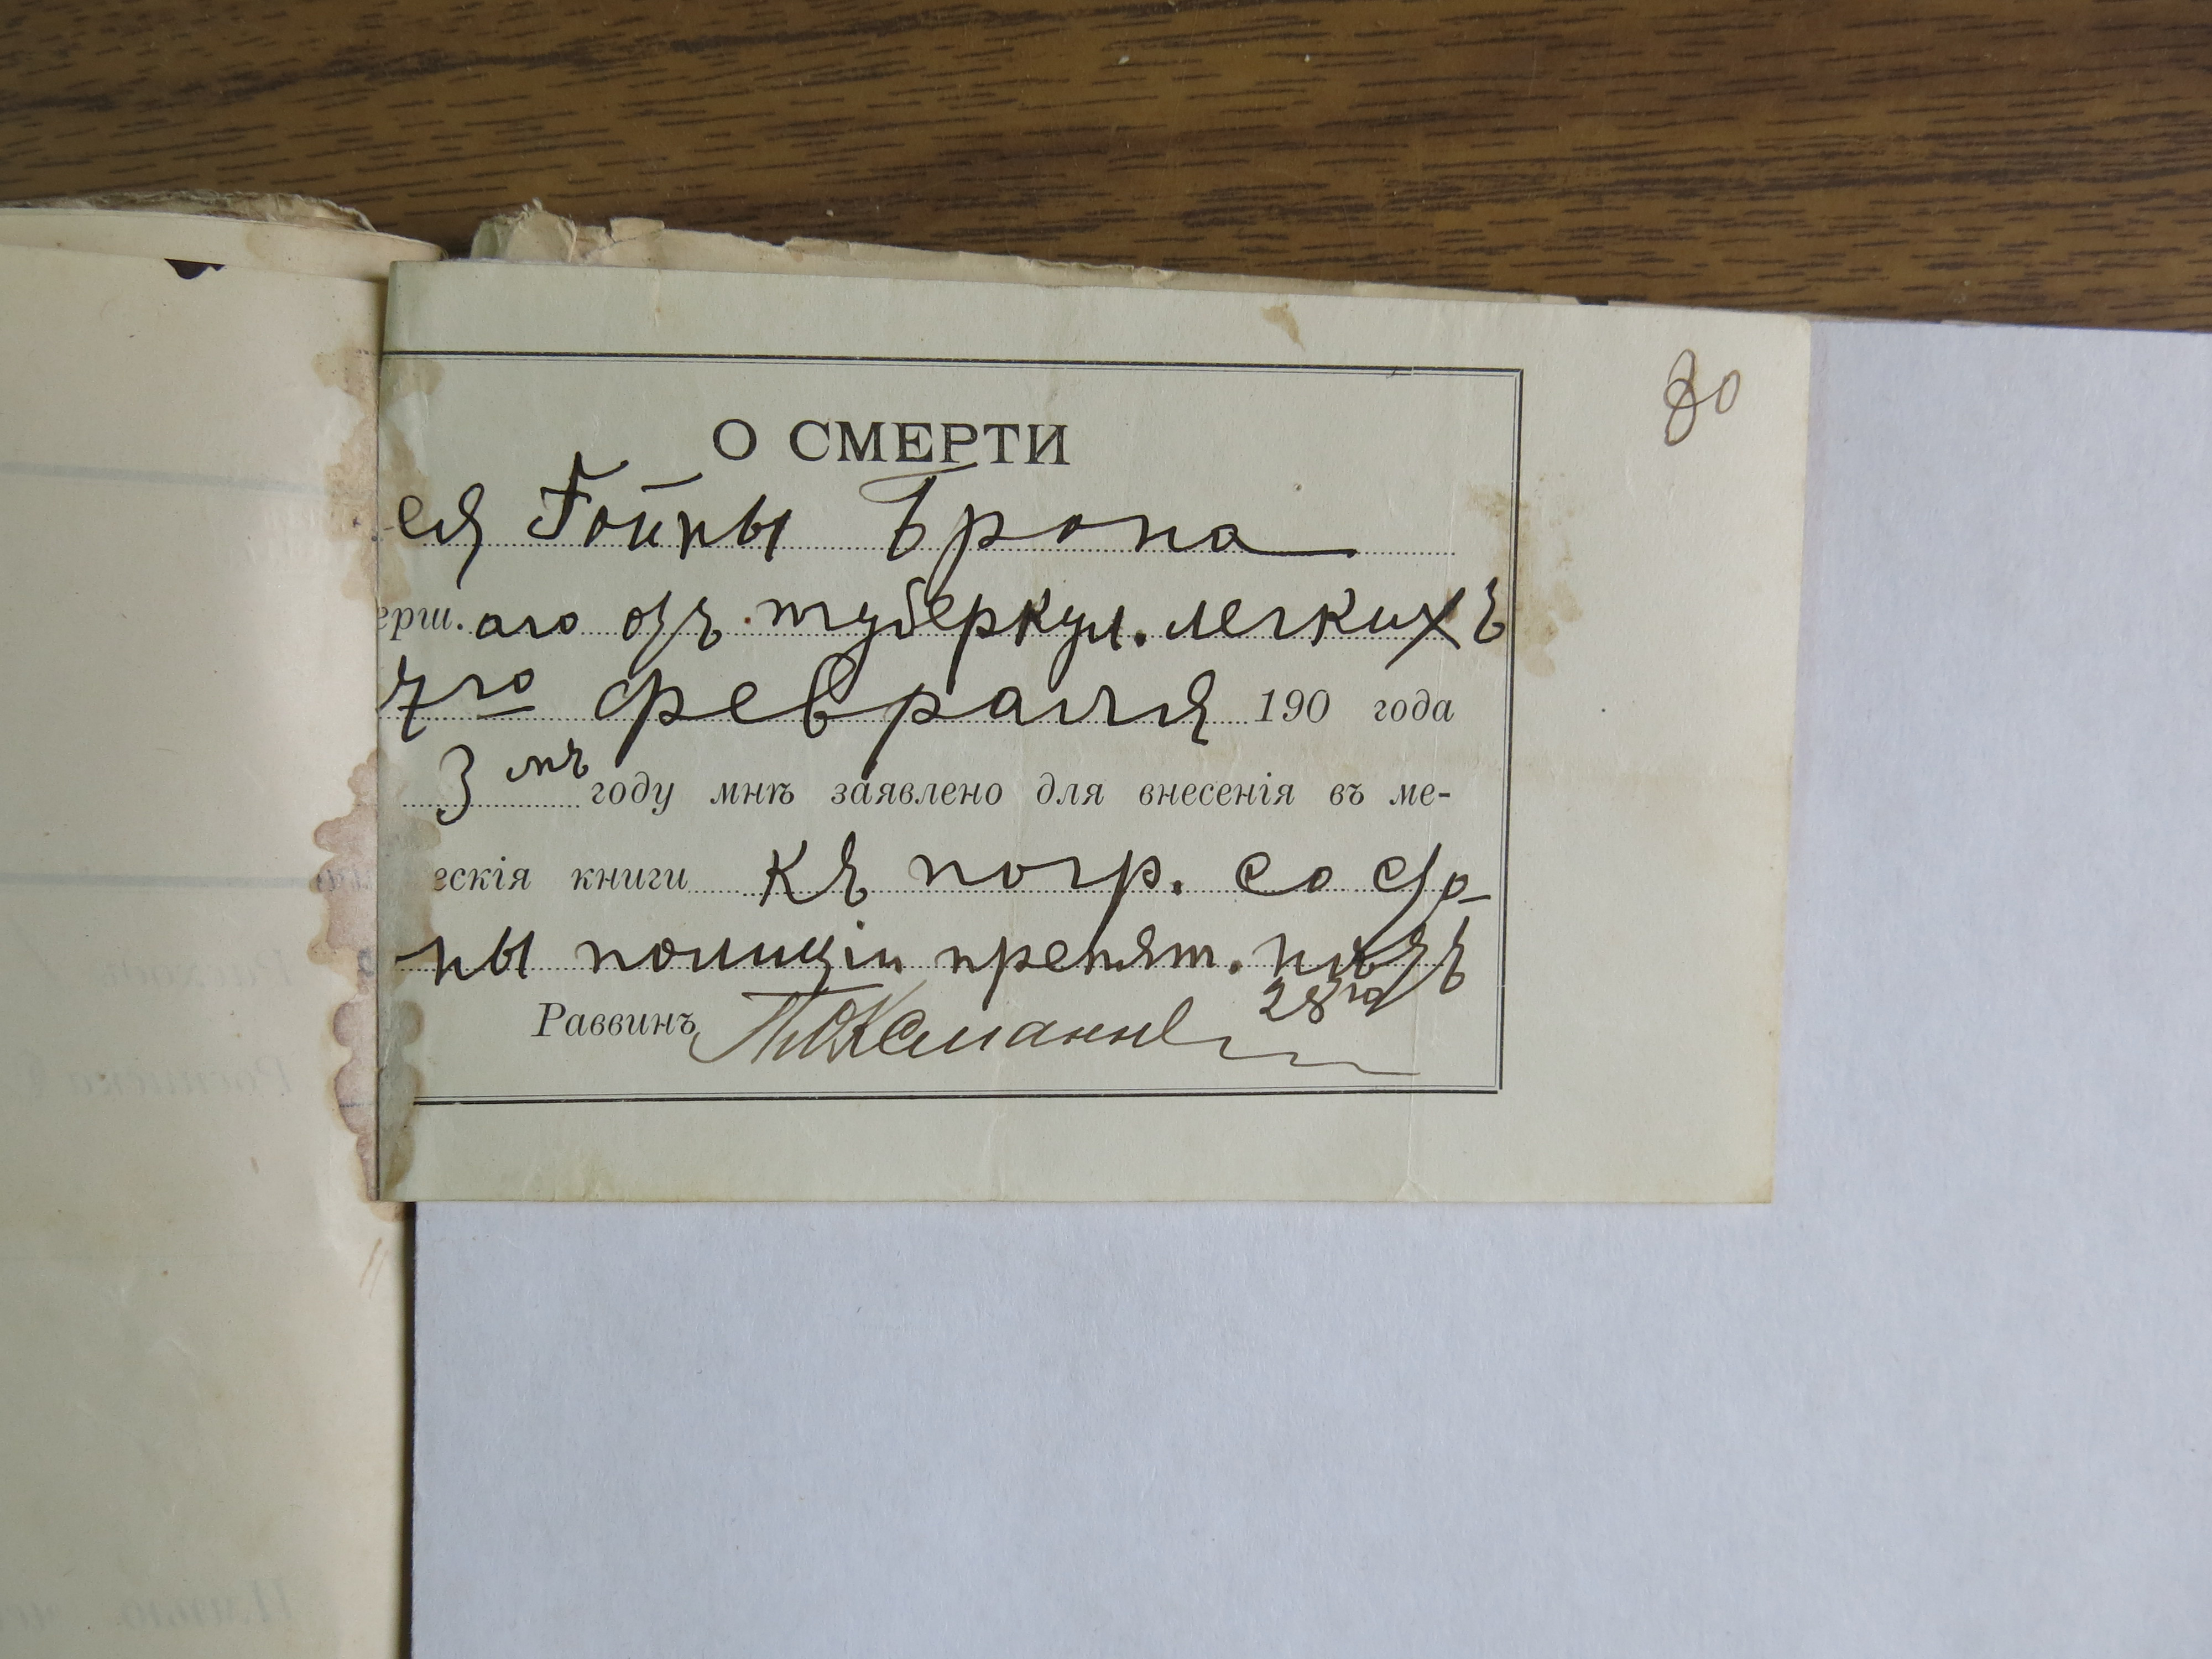 80
О СМЕРТИ
ея Гойны Брона
ерш. аго отъ туберкул. легкихъ
7го февраля 190 года
3 мъ году мнѣ заявлено для внесенія въ ме-
ескія книги къ погр. со сто-
ны полиціи препят. нѣтъ
28го
Раввинъ